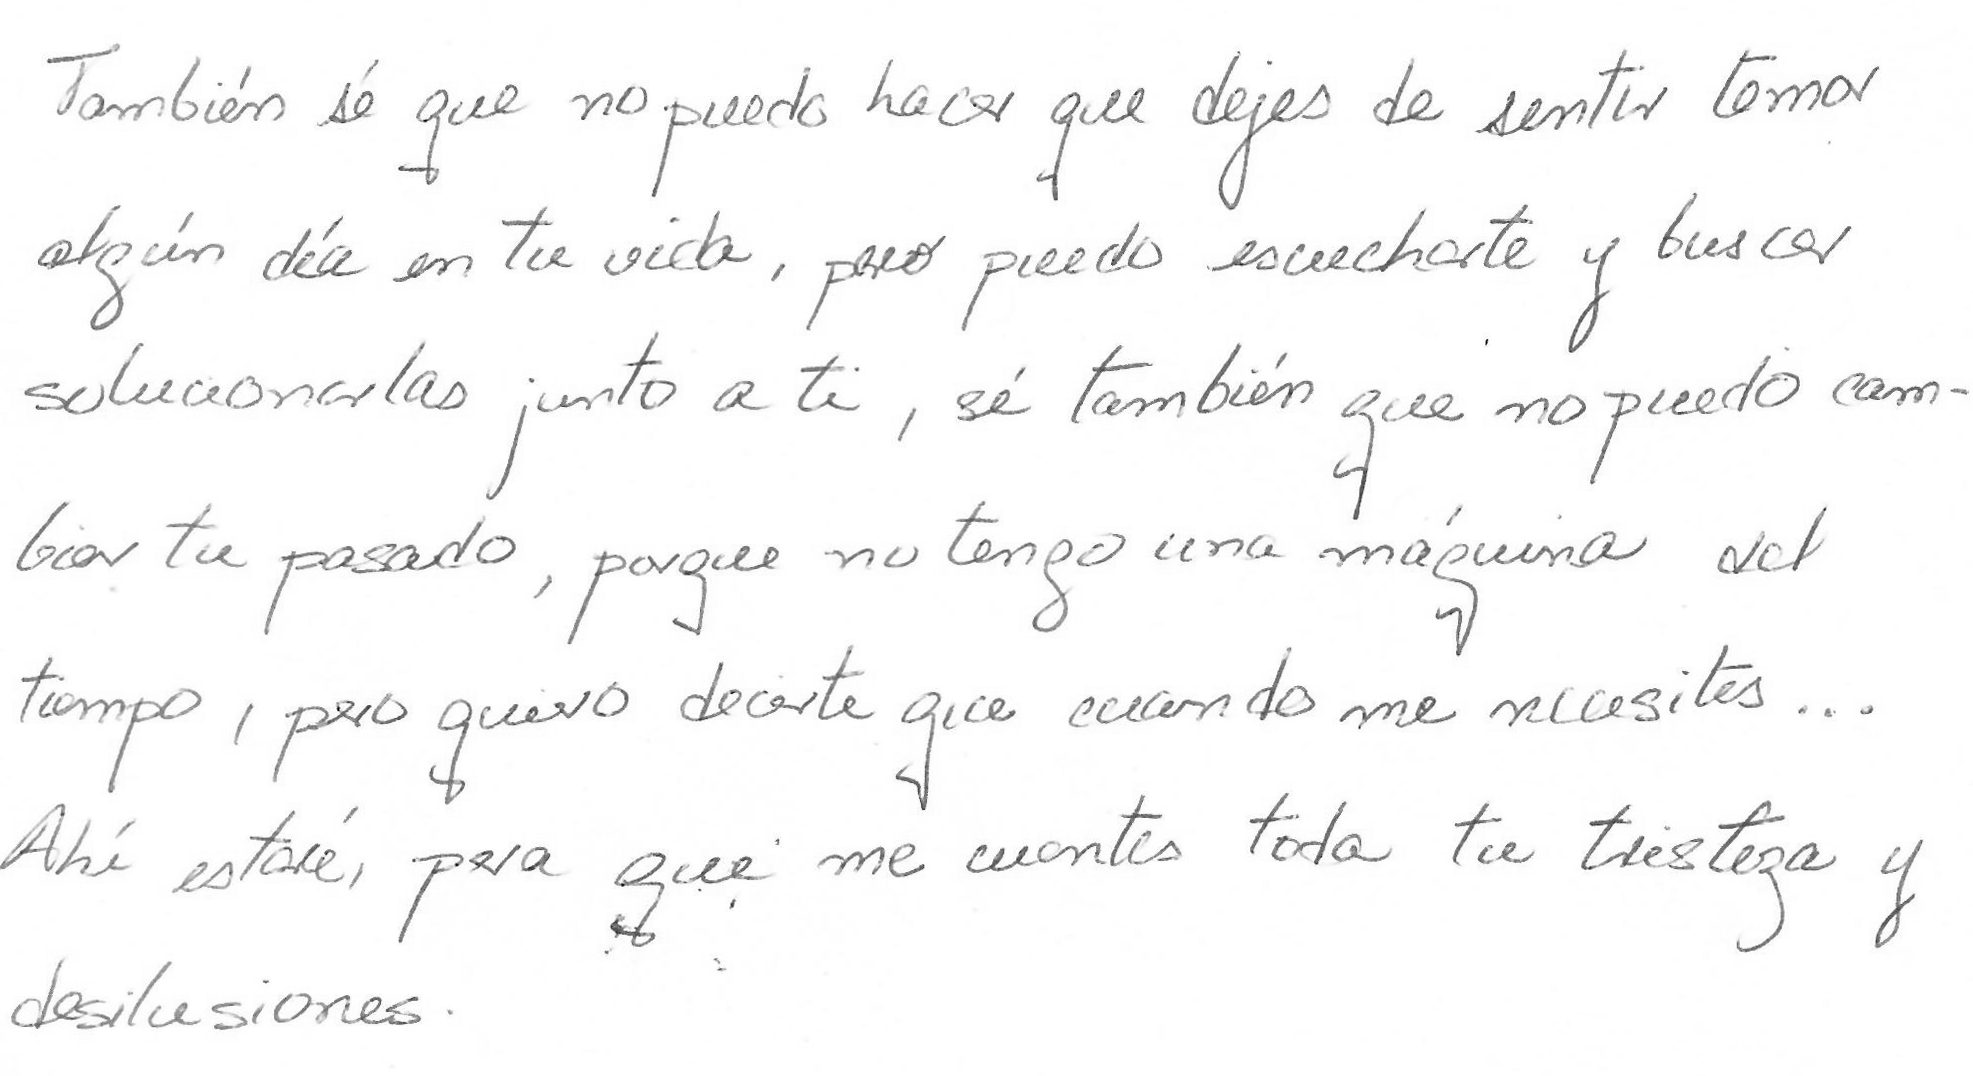 También sé que no puedo hacer que dejes de sentir temor
algún día en tu vida, pero puedo escucharte y buscar
solucionarlas junto a ti, sé también que no puedo cam-
biar tu pasado, porque no tengo una máquina del
tiempo, pero quiero decirte que cuando me necesites...
Ahí estaré, para que me cuentes toda tu tristeza y
desilusiones.